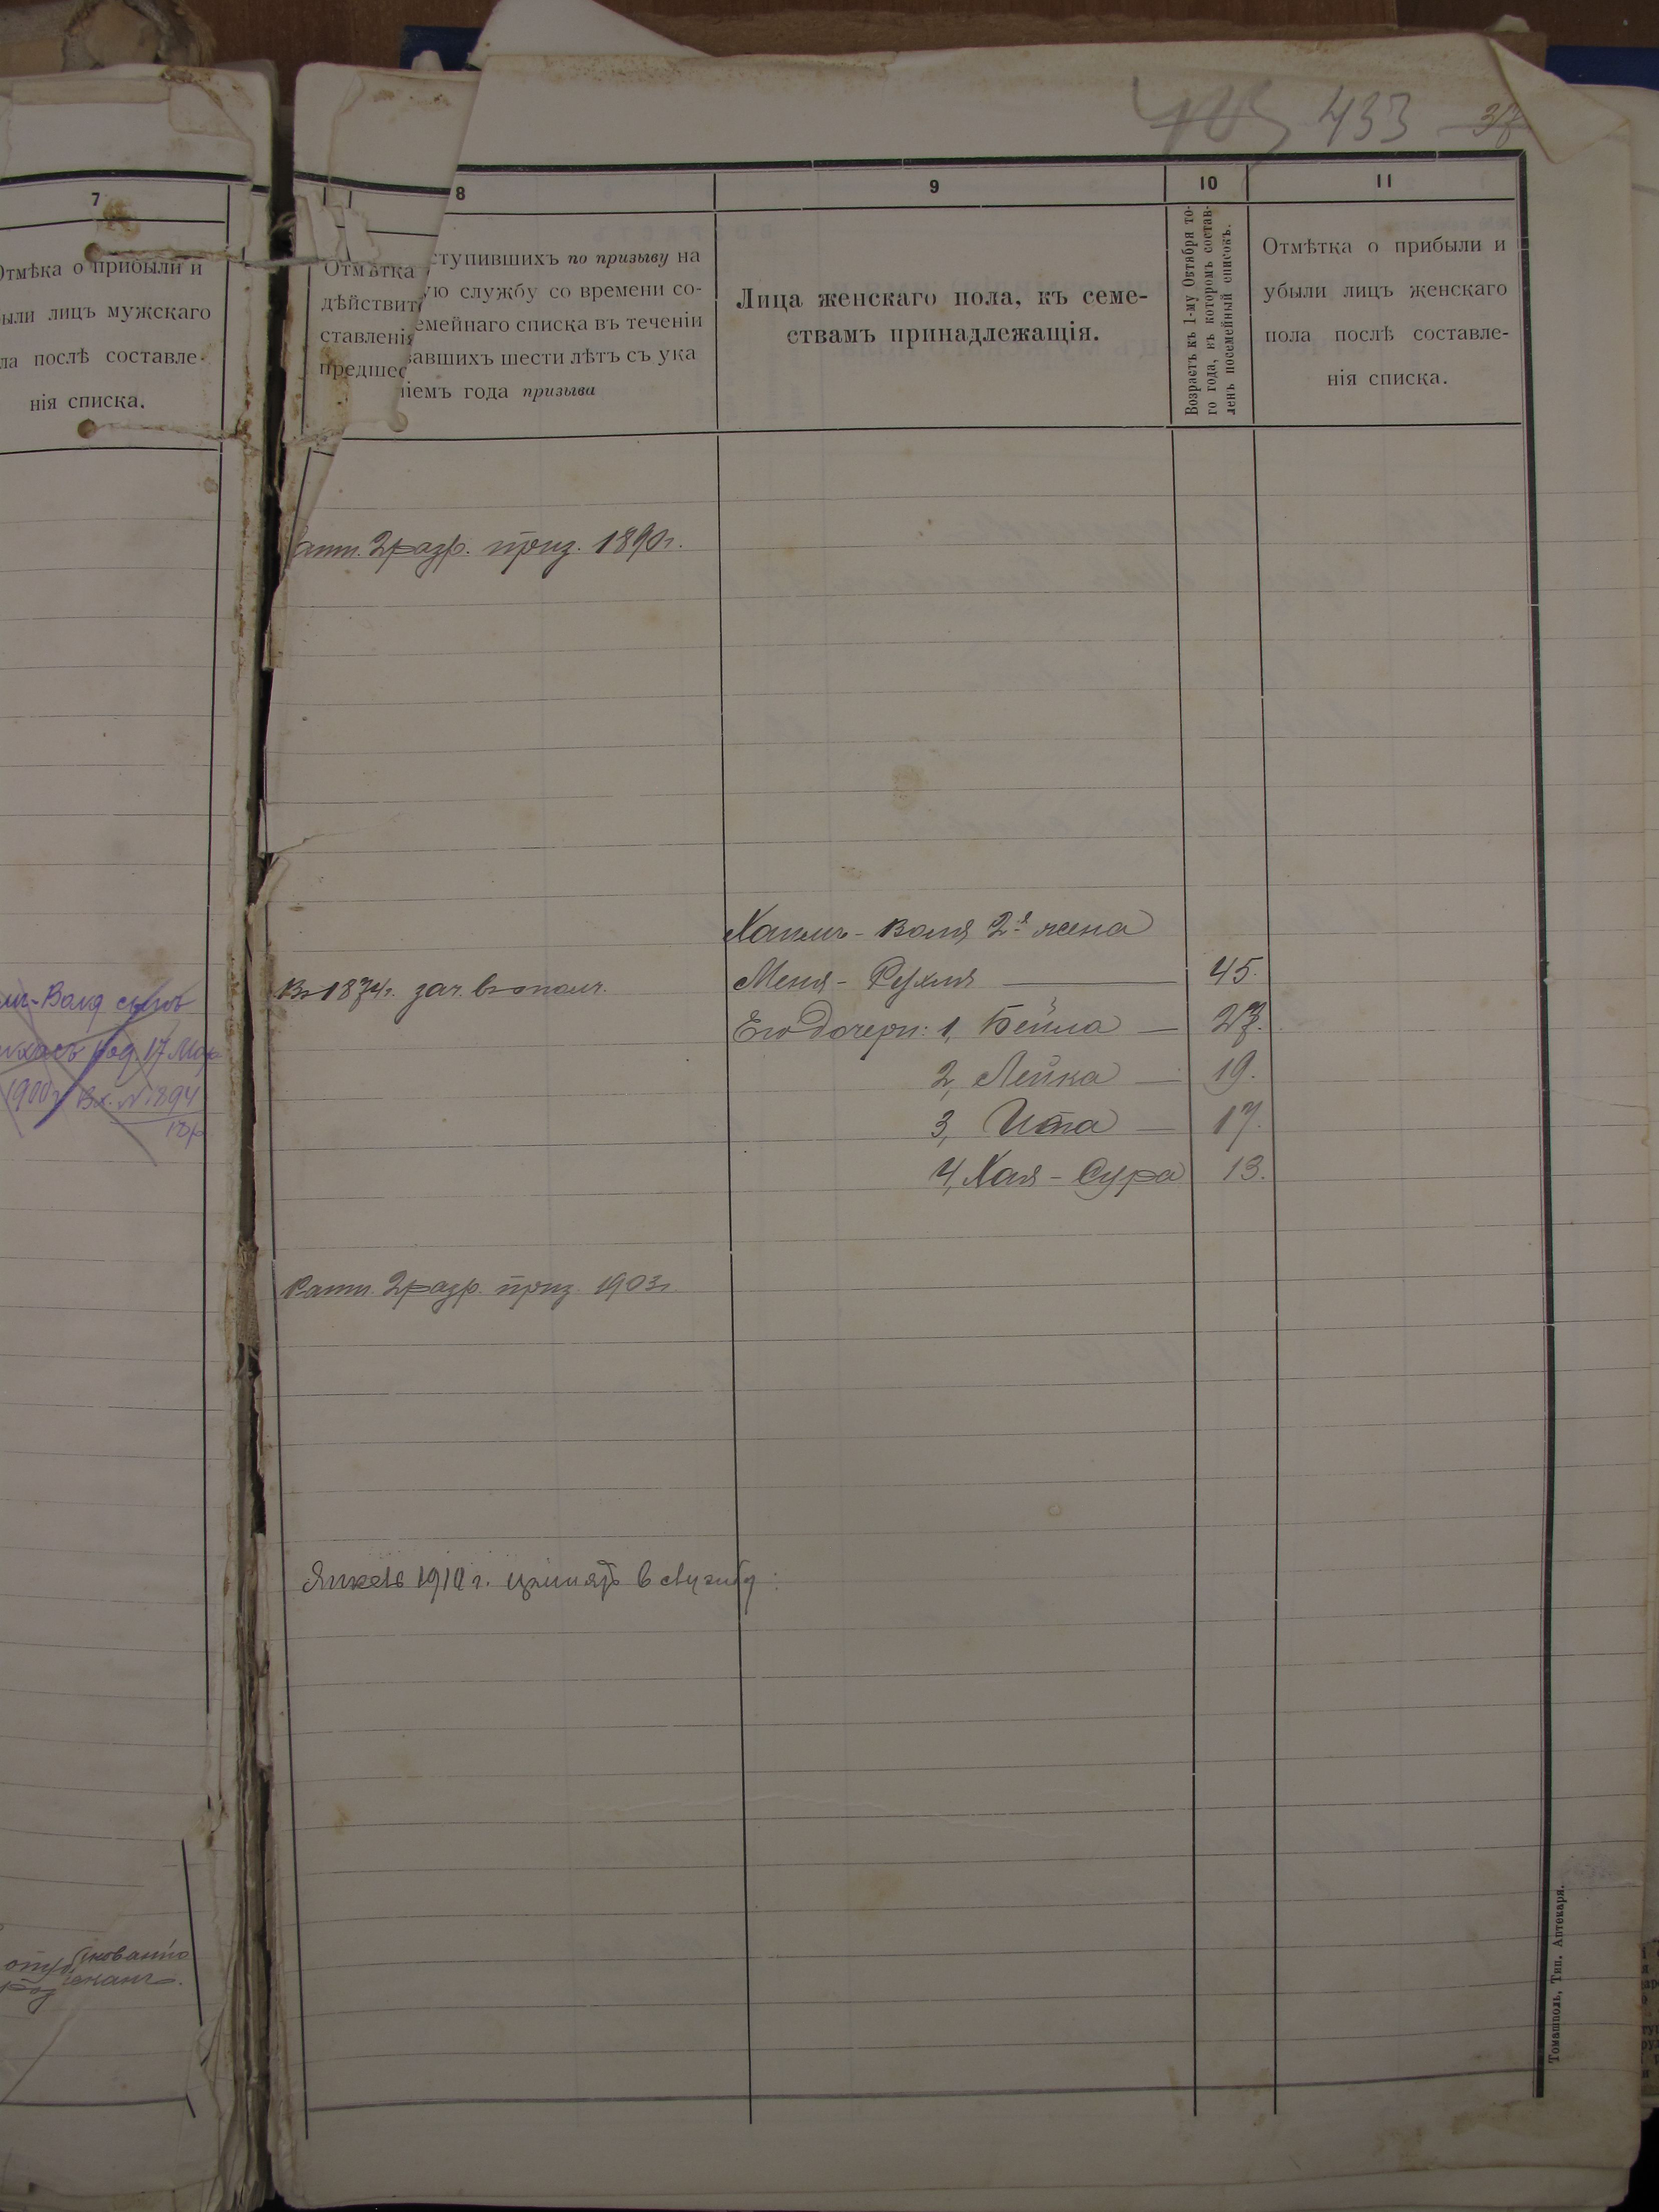 433 37
7
Отмѣка о прибыли и
были лицъ мужскаго
ла послѣ составле-
нія списка.
8
Отмѣтка ступившихъ по призыву на
дѣйствит ую службу со времени со-
ставленія емейнаго списка въ теченіи
предшес авшихъ шести лѣтъ съ ука
ніемъ года призыва
9
Лица женскаго пола, къ семе-
ствамъ принадлежащія.
10
Возрастъ къ 1-му Октября то-
го года, въ которомъ состав-
ленъ посемейный списокъ.
11
Отмѣтка о прибыли и
убыли лицъ женскаго
пола послѣ составле-
нія списка.
атн. 2 разр. приз. 1890 г.
Хаимъ-Воля 2я жена
Въ 1874 г. зач. въ ополч.
Меня-Рухля — 45.
Его дочери: 1, Бейла — 27.
2, Лейка — 19.
3, Ита — 17.
4, Хая-Сура 13.
-Воля сынъ
род. 17 Мар
1900 г Вх. № 894
Ратн. 2 разр. приз. 1903 г.
Янкель 1910 г. принятъ в службу:
Томашполь, Тип. Аптекаря.